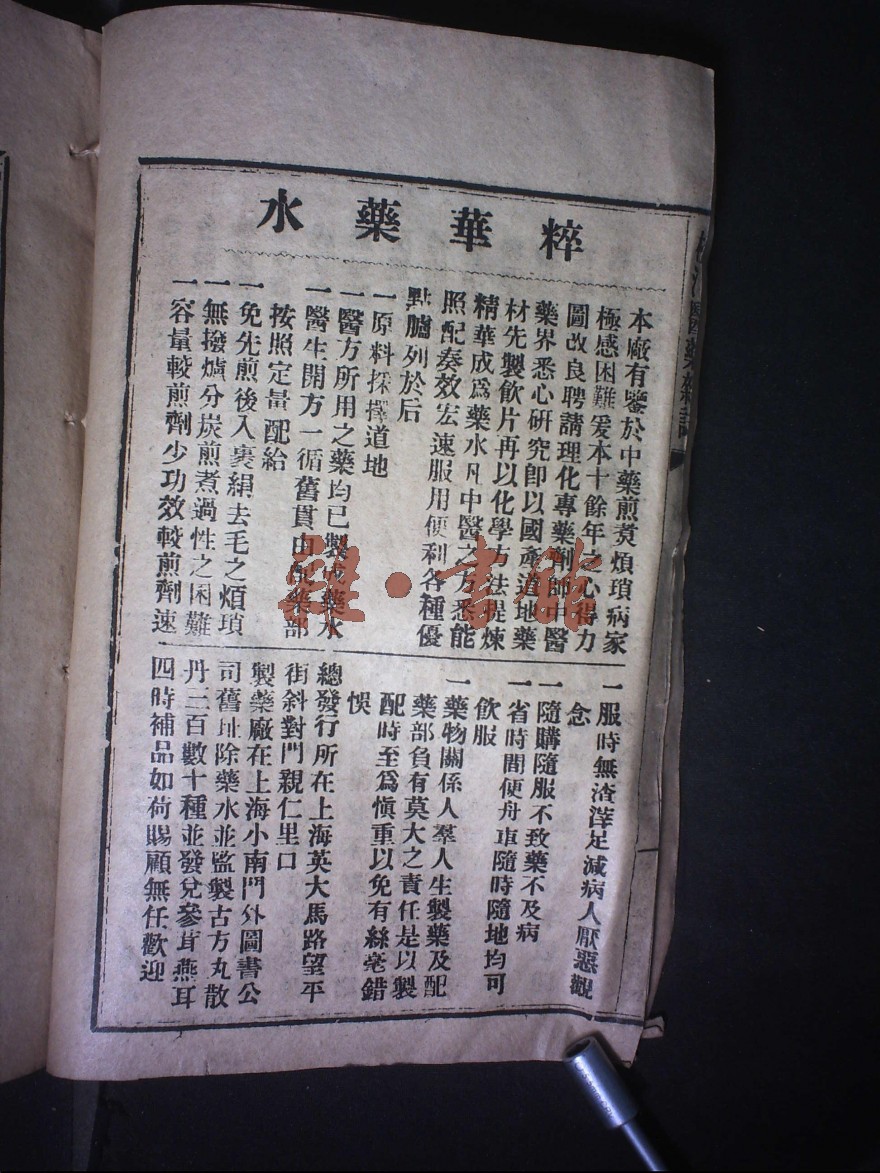 粹華藥水
本廠有鑒於中藥煎煑煩瑣病家
極感困難爰本十餘年之心得力
圖改良聘請理化專藥劑師中醫
藥界悉心研究卽以國產道地藥
材先製飮片再以化學方法提煉
精華成爲藥水凡中醫之方悉能
照配奏效宏速服用便利各種優
點臚列於后
一原料採擇道地
一醫方所用之藥均已製成藥水
一醫生開方一循舊貫由配藥部
按照定量配給
一免先煎後入裹絹去毛之煩瑣
一無撥爐分炭煎煮過性之困難
一容量較煎劑少功效較煎劑速
一服時無渣滓足減病人厭惡觀
念
一隨購隨服不致藥不及病
一省時間便舟車隨時隨地均可
飮服
一藥物關係人羣人生製藥及配
藥部負有莫大之責任是以製
配時至爲愼重以免有絲毫錯
悞
總發行所在上海英大馬路望平
街斜對門親仁里口
製藥廠在上海小南門外圖書公
司舊址除藥水並監製古方丸散
丹三百數十種並發兌參茸燕耳
四時補品如荷賜顧無任歡迎
醫藥雜誌
雜·書館